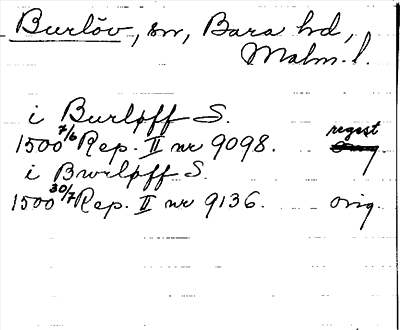 Burlöv, sn, Bara hd,
Malm. l.
i Burløff S. regest
1500 7/6 Rep. II nr 9098.
i Bwrløff S.
1500 30/7 Rep. II nr 9136. orig.